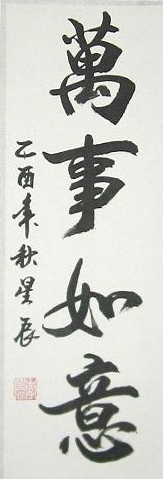 萬事如意
乙酉年秋星辰